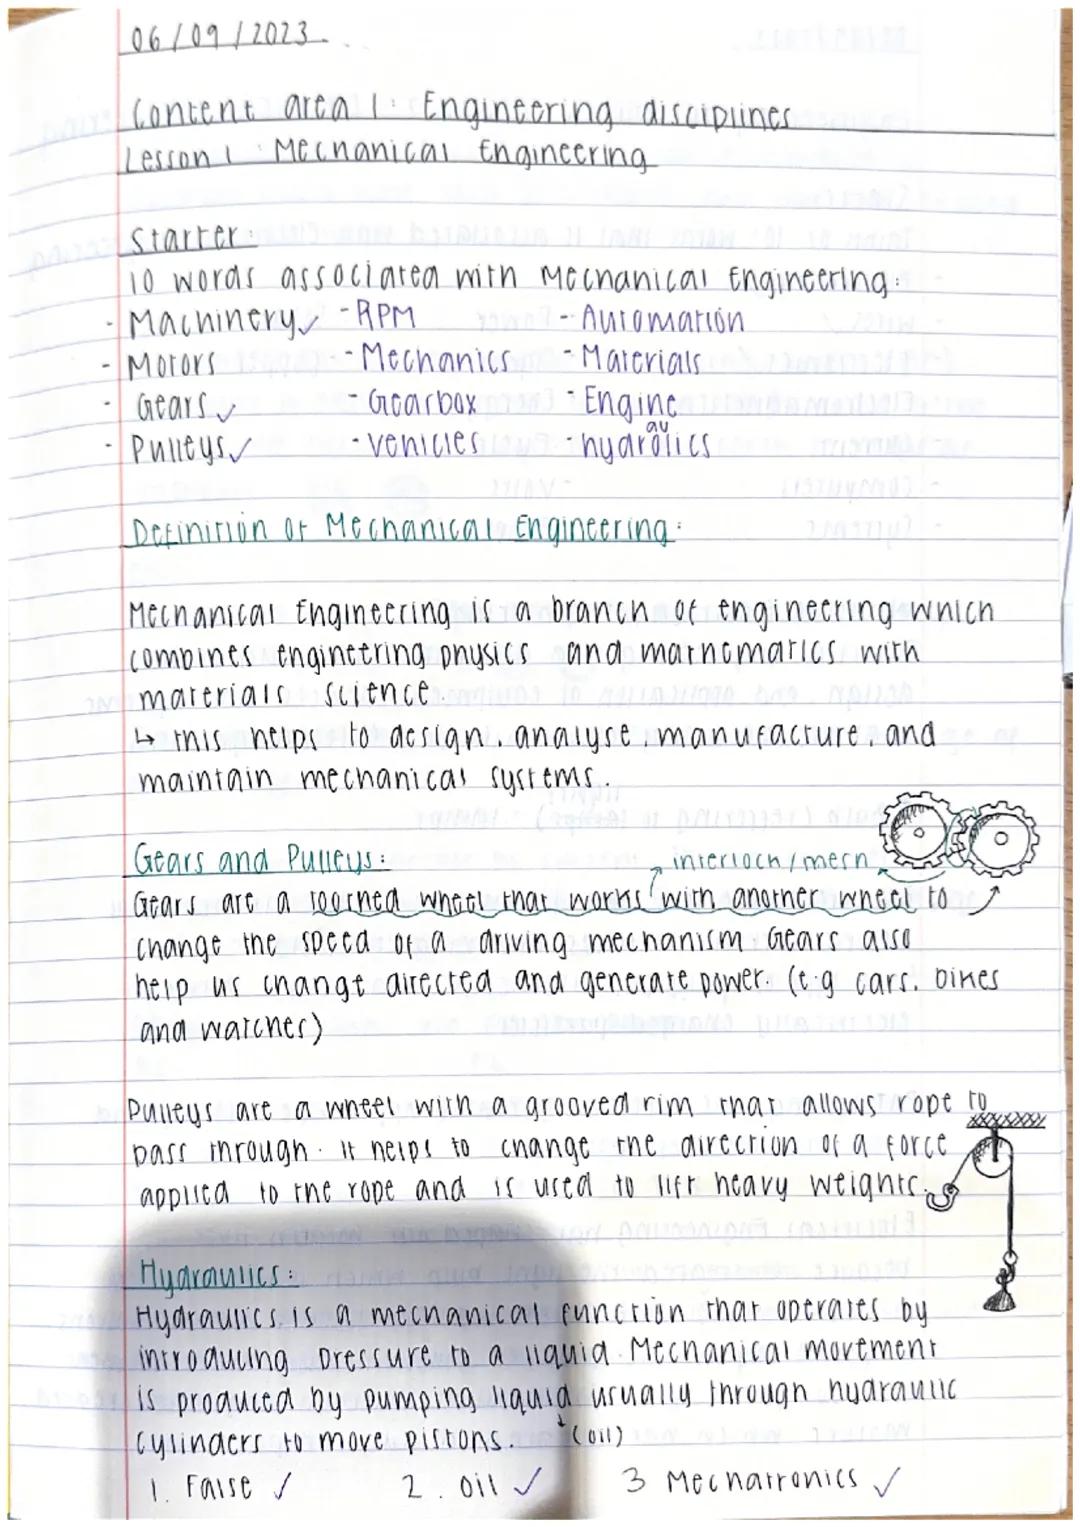 06/09/2023
Content area 1: Engineering disciplines
Lesson 1: Mechanical Engineering
Starter:
10 words associated with Mechanical Engineering:
- Machinery ✓ - RPM - Automation
- Motors - Mechanics - Materials
- Gears ✓ - Gearbox - Engine
- Pulleys ✓ - vehicles - hydrolics
au
Definition of Mechanical Engineering:
Mechanical Engineering is a branch of engineering which
combines engineering physics and mathematics with
materials science.
↳ this helps to design, analyse, manufacture, and
maintain mechanical systems.
Gears and Pulleys: interlock/mesh
Gears are a toothed wheel that works with another wheel to
change the speed of a driving mechanism Gears also
help us change directed and generate power. (e.g cars, bikes
and watches)
Pulleys are a wheel with a grooved rim that allows rope to
pass through. It helps to change the direction of a force
applied to the rope and is used to lift heavy weights.
Hydraulics:
Hydraulics is a mechanical function that operates by
introducing pressure to a liquid. Mechanical movement
is produced by pumping liquid usually through hydraulic
cylinders to move pistons. (oil)
1. False ✓ 2. oil ✓ 3 Mechatronics ✓